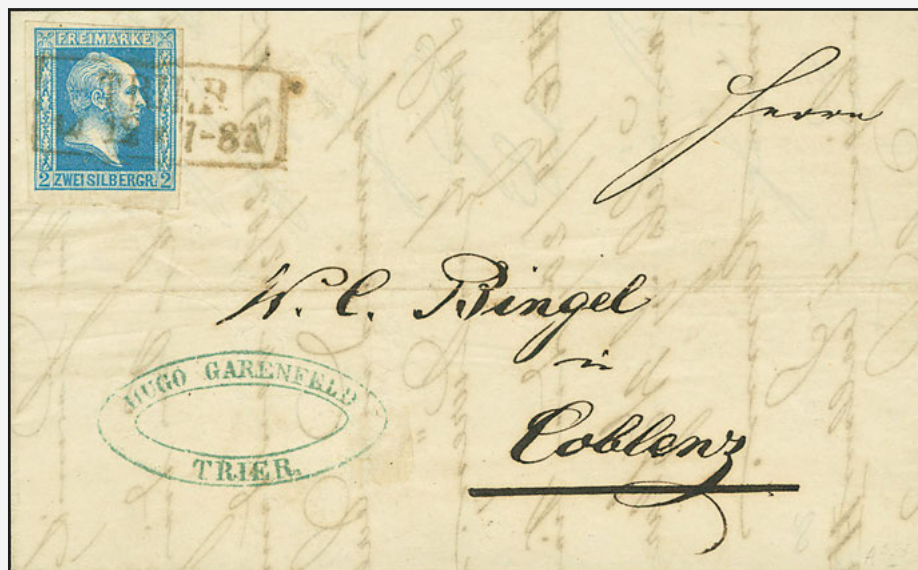 FREIMARKE
TRIER
7-8A
2 ZWEI SILBERGR. 2
Herrn
W. C. Bingel
in
Coblenz
HUGO GARENFELD
TRIER.